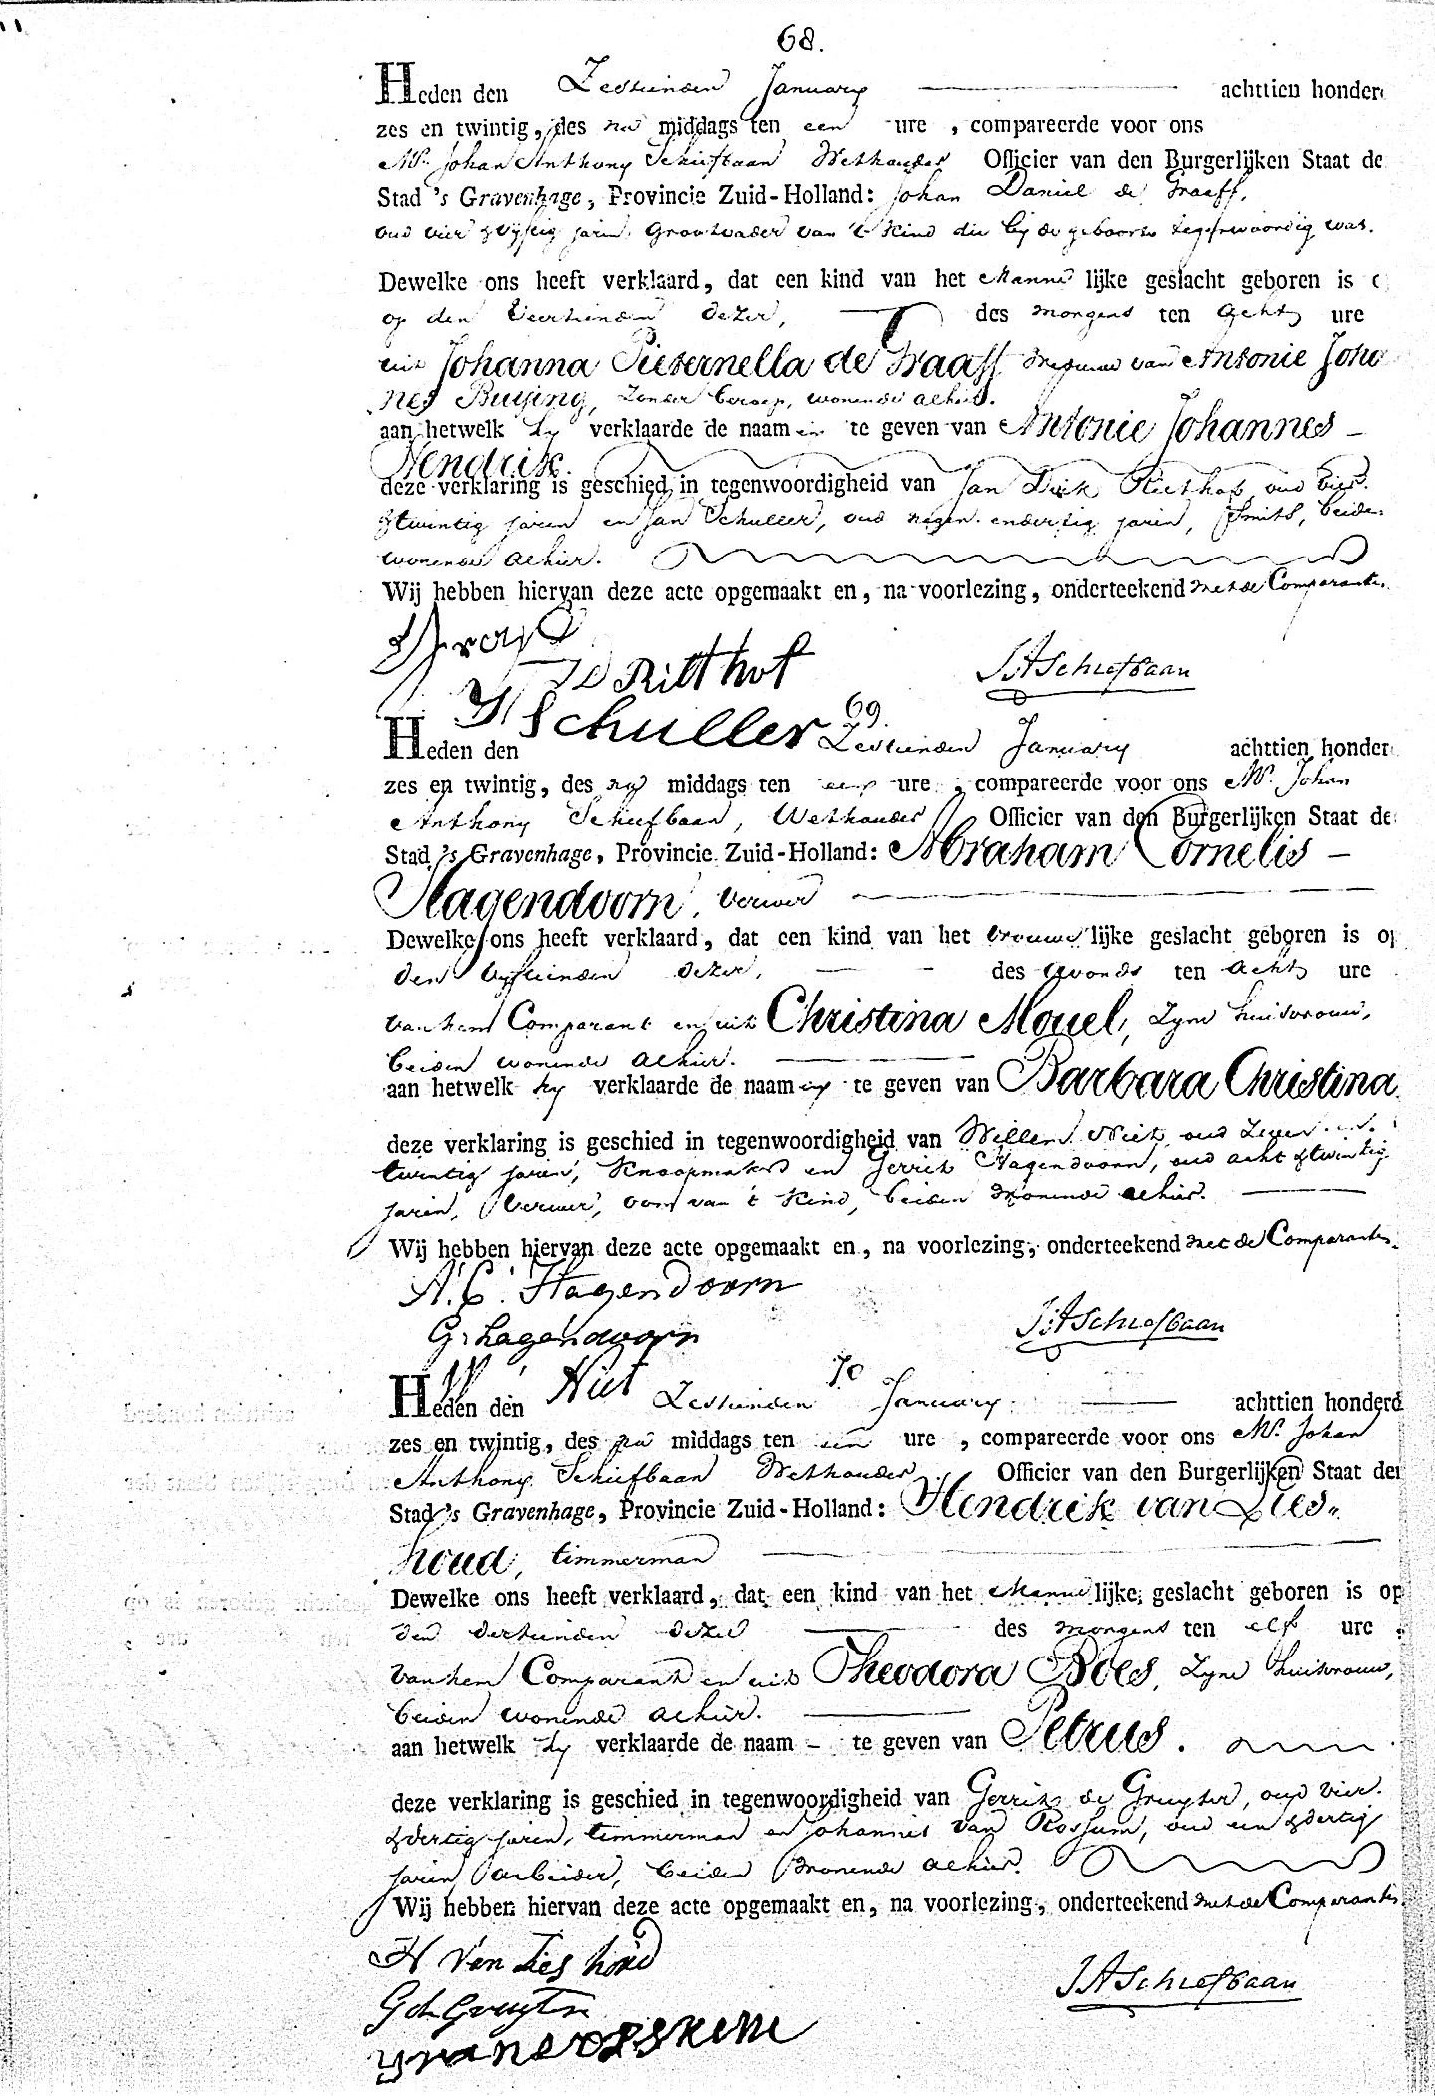 68.
Heden den Zestienden January achttien honderd
zes en twintig, des na middags ten een ure, compareerde voor ons
Mr. Johan Anthony Schiefbaan Wethouder Officier van den Burgerlijken Staat de
Stad 's Gravenhage, Provincie Zuid-Holland: Johan Daniel de Graaff,
oud vier & vyftig jaren, Grootvader van 't Kind die by de geboorte tegenwoordig was.
Dewelke ons heeft verklaard, dat een kind van het Manne lijke geslacht geboren is
op den Veertienden dezer, des morgens ten acht ure
uit Johanna Pieternella de Graaff huysvrouw van Antonie Joha
nes Buijing, zonder beroep, wonende alhier.
aan hetwelk hy verklaarde de naamen te geven van Antonie Johannes -
Hendrik.
deze verklaring is geschied in tegenwoordigheid van Jan Dirk Riethof oud vier
& twintig jaren en Jan Schuller, oud negen en dertig jaren, Smits, beide
wonende alhier.
Wij hebben hiervan deze acte opgemaakt en, na voorlezing, onderteekend met de Comparanten.
JD Ritthof
JASchiefbaan
J Schuller
69.
Heden den Zestienden January achttien honder
zes en twintig, des na middags ten een ure, compareerde voor ons Mr. Johan
Anthony Schiefbaan, Wethouder Officier van den Burgerlijken Staat de
Stad 's Gravenhage, Provincie Zuid-Holland: Abraham Cornelis -
Hagendoorn, verwer
Dewelke ons heeft verklaard, dat een kind van het vrouwe lijke geslacht geboren is op
den vyftienden dezer, des avonds ten acht ure
van hem Comparant en uit Christina Mouel, zyne huisvrouw,
beiden wonende alhier.
aan hetwelk hy verklaarde de naamen te geven van Barbara Christina
deze verklaring is geschied in tegenwoordigheid van Willem Niet, oud zeven en
twintig jaren, Knoopmaker en Gerrit Hagendoorn, oud acht & twintig
jaren, Verwer, oom van 't Kind, beiden wonende alhier.
Wij hebben hiervan deze acte opgemaakt en, na voorlezing, onderteekend met de Comparanten.
A. C. Hagendoorn
JASchiefbaan
G. hagendoorn
W Niet
70
Heden den Zestienden January achttien honderd
zes en twintig, des na middags ten een ure, compareerde voor ons Mr. Johan
Anthony Schiefbaan Wethouder Officier van den Burgerlijken Staat der
Stad 's Gravenhage, Provincie Zuid-Holland: Hendrik van Lies„
houd, timmerman
Dewelke ons heeft verklaard, dat een kind van het Manne lijke geslacht geboren is op
den dertienden dezer des morgens ten elf ure
van hem Comparant en uit Theodora Boes, zyne huisvrouw,
beiden wonende alhier.
aan hetwelk hy verklaarde de naam - te geven van Petrus.
deze verklaring is geschied in tegenwoordigheid van Gerrit de Gruyter, oud vier
& dertig jaren, timmerman en Johannes van Rossum, oud een & dertig
jaren, arbeider, beiden wonende alhier.
Wij hebben hiervan deze acte opgemaakt en, na voorlezing, onderteekend met de Comparanten.
H Van Lies houd
JASchiefbaan
G de Gruyter